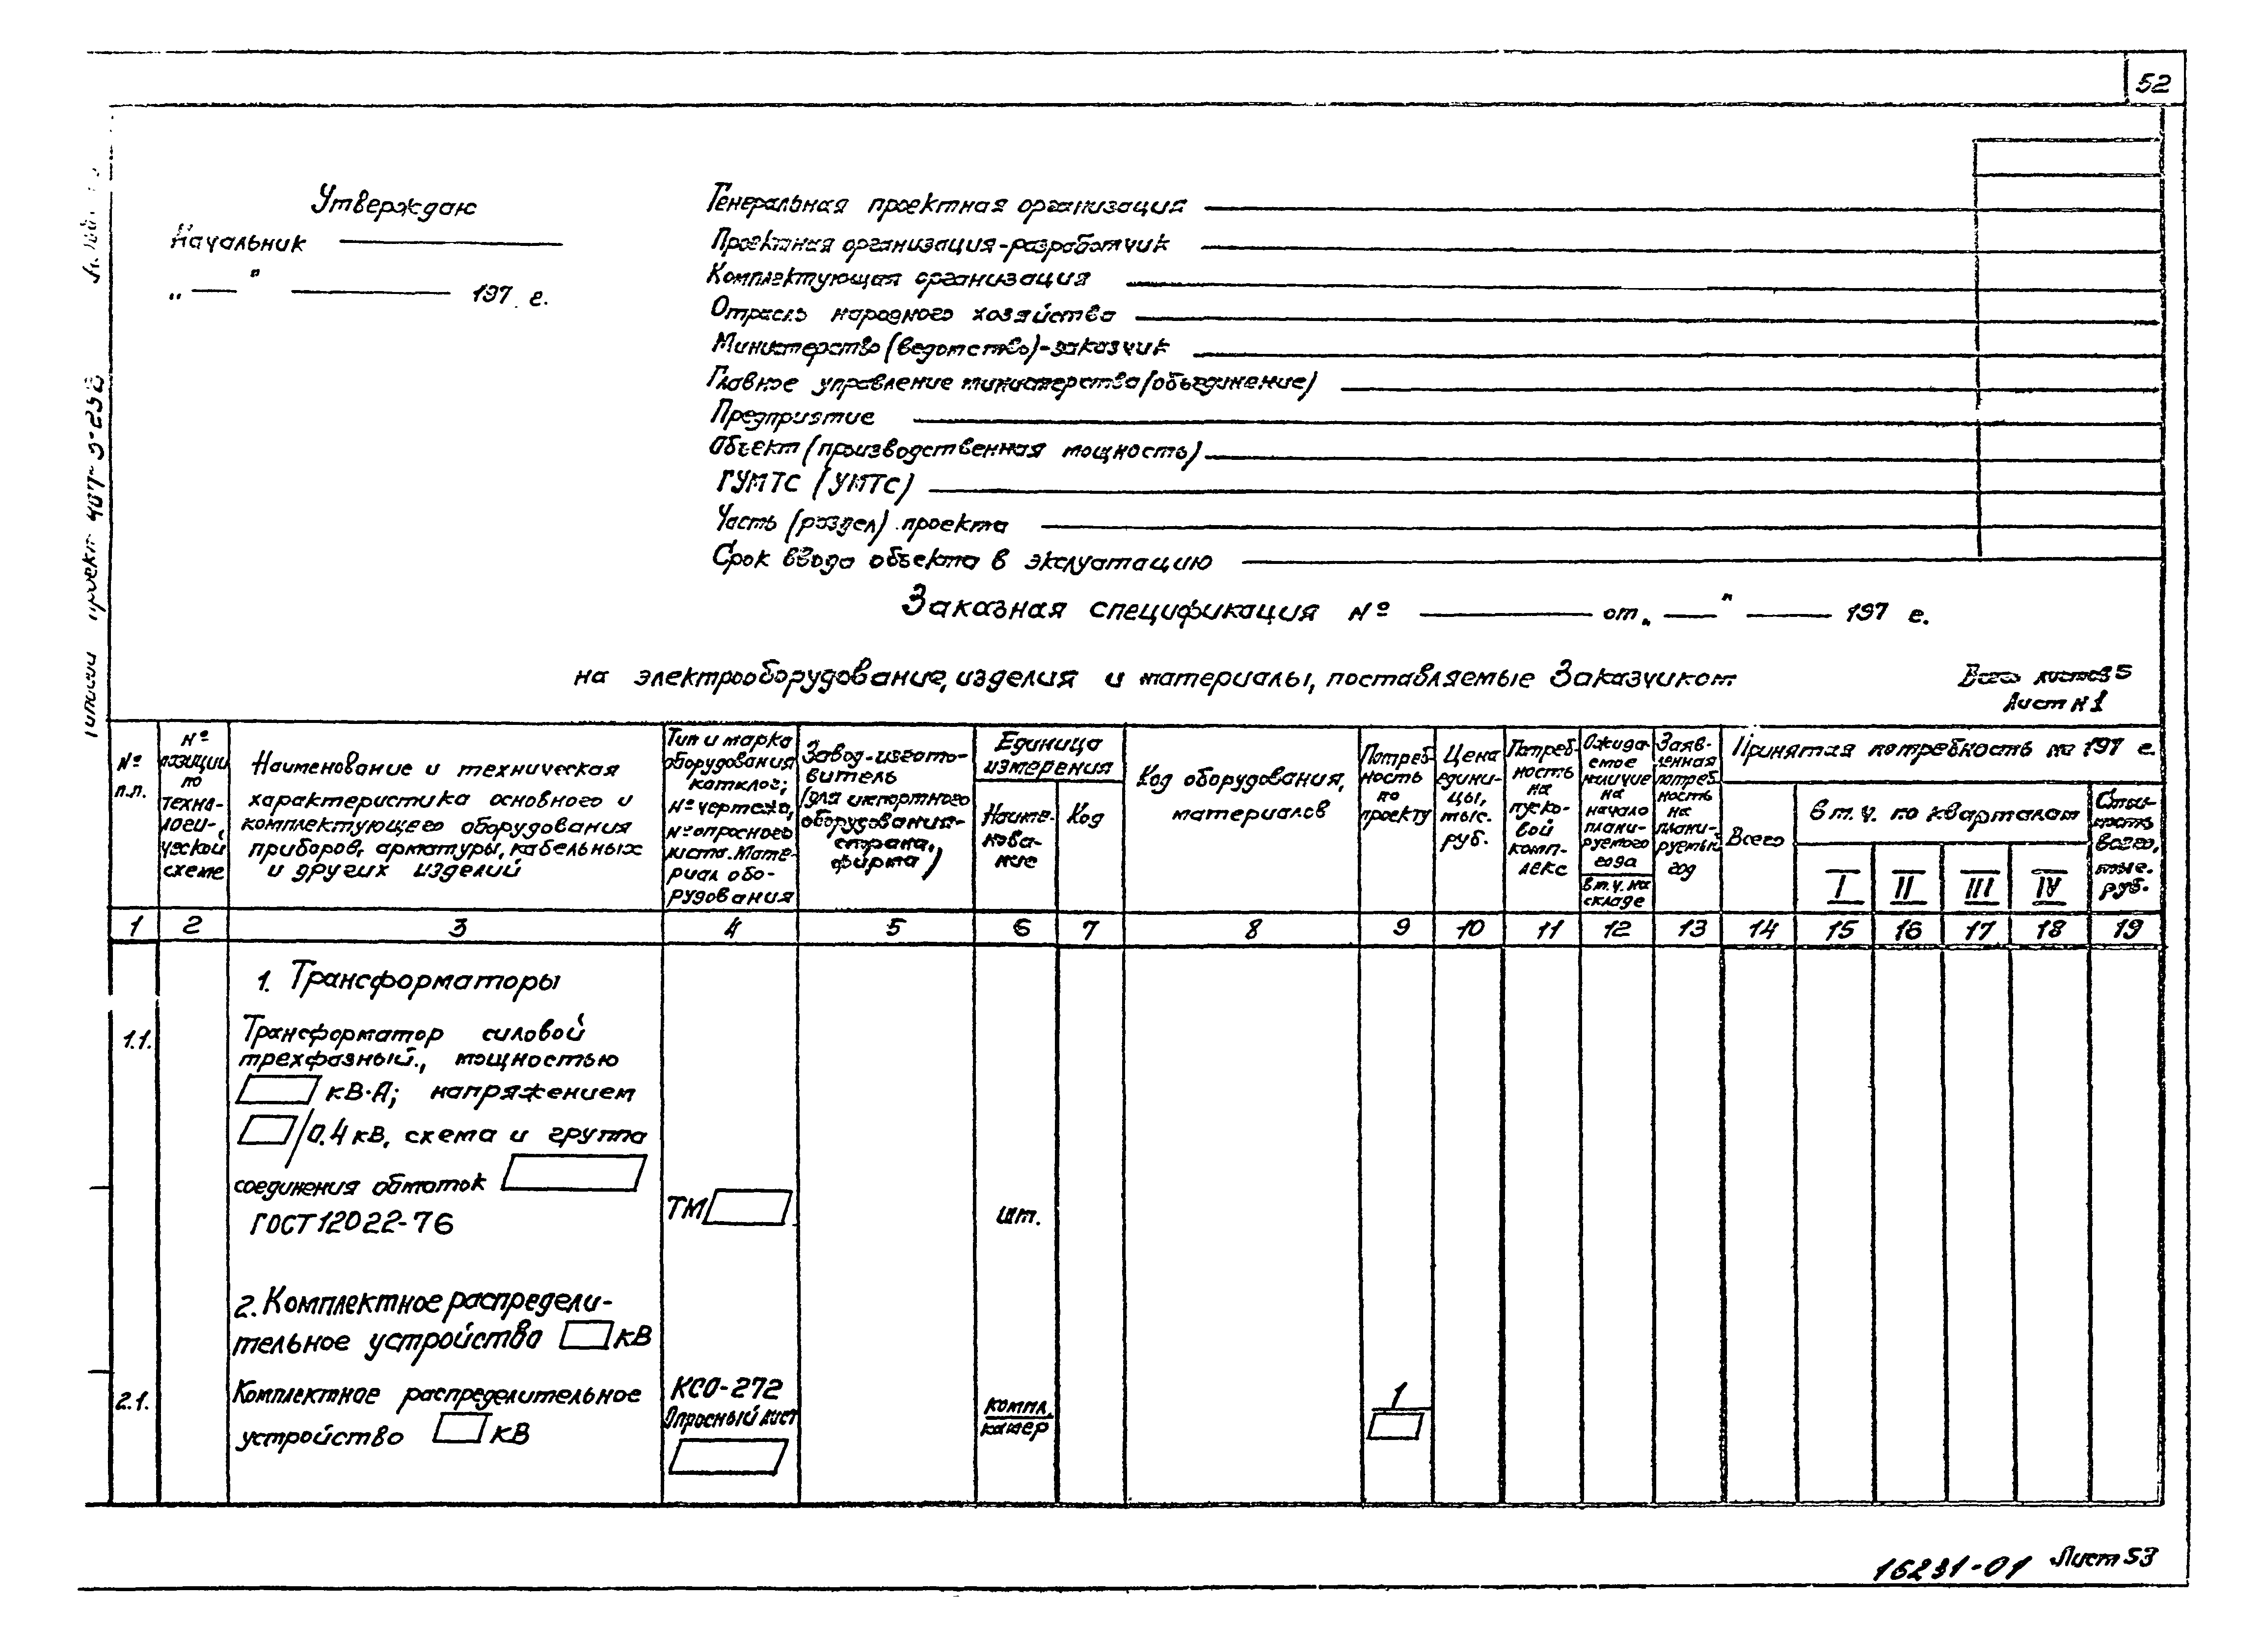 52
Утверждаю
Начальник
„ " 197 г.
Генеральная проектная организация
Проектная организация-разработчик
Комплектующая организация
Отрасль народного хозяйства
Министерство (ведомство)-заказчик
Главное управление министерства (объединение)
Предприятие
Объект (производственная мощность)
ГУМТС (УМТС)
Часть (раздел) проекта
Срок ввода объекта в эксплуатацию
Заказная спецификация № от „ " 197 г.
на электрооборудование, изделия и материалы, поставляемые Заказчиком
Всего листов 5
Лист № 1
№
п.п.
№
позиции
по
техно-
логи-
ческой
схеме
Наименование и техническая
характеристика основного и
комплектующего оборудования
приборов, арматуры, кабельных
и других изделий
Тип и марка
оборудования
каталог;
№ чертежа,
№ опросного
листа. Мате-
риал обо-
рудования
Завод-изгото-
витель
(для импортного
оборудования-
страна,
фирма)
Единица
измерения
Наиме-
нова-
ние
Код
Код оборудования,
материалов
Потреб-
ность
по
проекту
Цена
едини-
цы,
тыс.
руб.
Потреб-
ность
на
пуско-
вой
комп-
лекс
Ожида-
емое
наличие
на
начало
плани-
руемого
года
в т.ч. на
складе
Заяв-
ленная
потреб-
ность
на
плани-
руемый
год
Принятая потребность на 197 г.
Всего
в т.ч. по кварталам
I II III IV
Стои-
мость
всего,
тыс.
руб.
1 2 3 4 5 6 7 8 9 10 11 12 13 14 15 16 17 18 19
1. Трансформаторы
1.1. Трансформатор силовой
трехфазный, мощностью
кВ·А; напряжением
/0.4 кВ, схема и группа
соединения обмоток
ГОСТ 12022-76
ТМ шт.
2. Комплектное распредели-
тельное устройство кВ
2.1. Комплектное распределительное
устройство кВ
КСО-272
Опросный лист
компл.
камер
1
типовой проект 407-3-
16231-01 Лист 53